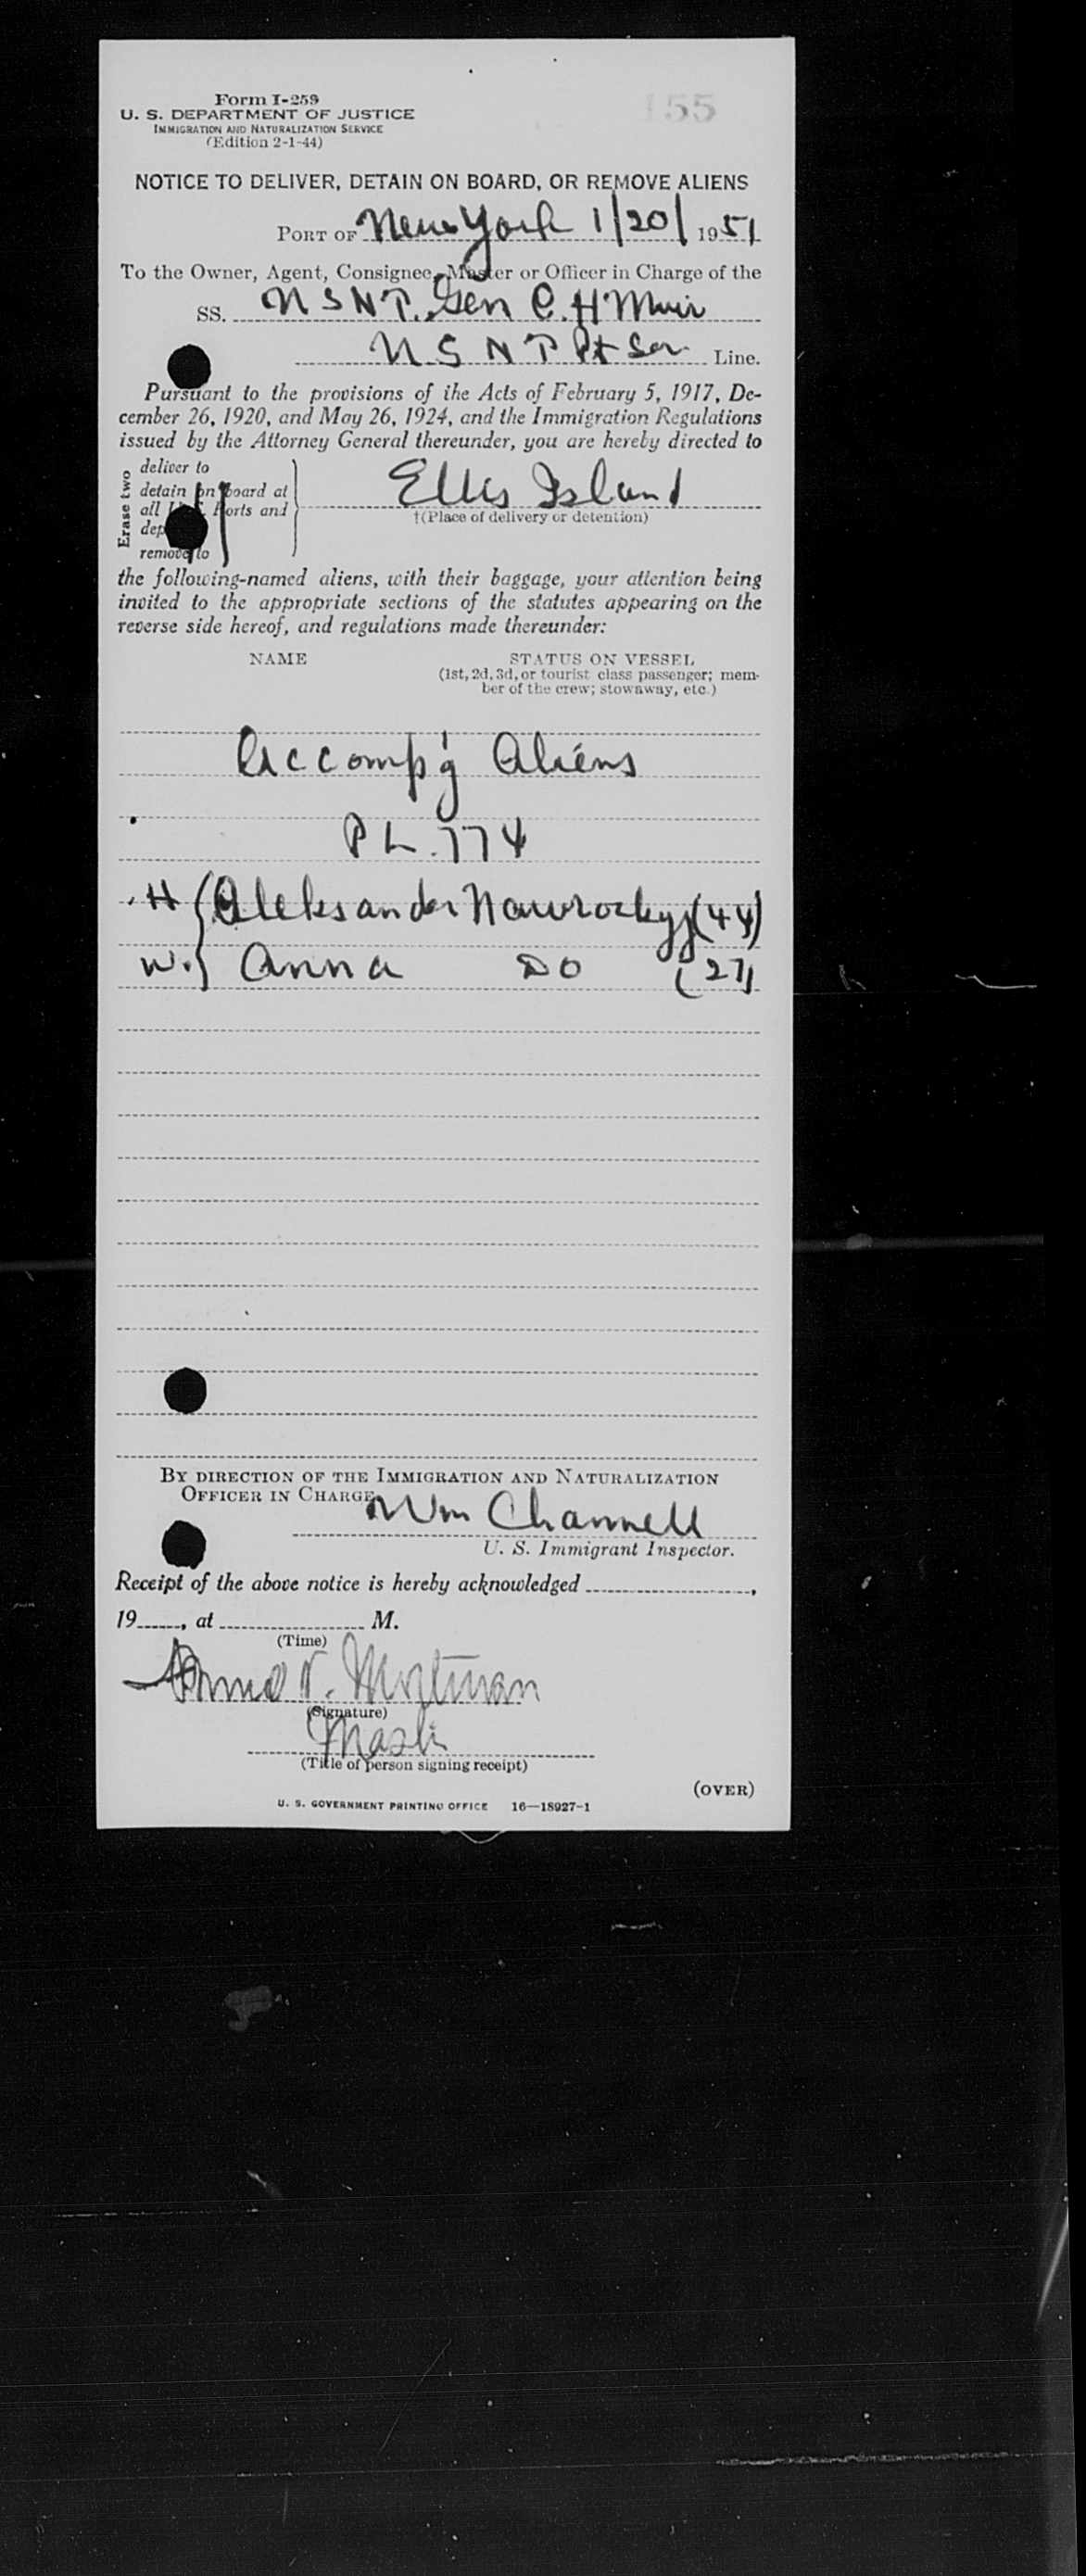 155
Form I-259
U. S. DEPARTMENT OF JUSTICE
IMMIGRATION AND NATURALIZATION SERVICE
(Edition 2-1-44)
NOTICE TO DELIVER, DETAIN ON BOARD, OR REMOVE ALIENS
PORT OF New York 1/20/ 1951
To the Owner, Agent, Consignee, Master or Officer in Charge of the
SS. U S N T. Gen C. H Muir
U S N T Pt Ser Line.
Pursuant to the provisions of the Acts of February 5, 1917, De-
cember 26, 1920, and May 26, 1924, and the Immigration Regulations
issued by the Attorney General thereunder, you are hereby directed to
Erase two
deliver to
detain on board at
all Ports and
dep
remove to
Ellis Island
†(Place of delivery or detention)
the following-named aliens, with their baggage, your attention being
invited to the appropriate sections of the statutes appearing on the
reverse side hereof, and regulations made thereunder:
NAME STATUS ON VESSEL
(1st, 2d, 3d, or tourist class passenger; mem-
ber of the crew; stowaway, etc.)
Accomp'g Aliens
P L. 774
H Aleksander Nawrockyj (44)
W. Anna DO (27)
BY DIRECTION OF THE IMMIGRATION AND NATURALIZATION
OFFICER IN CHARGE
Wm Channell
U. S. Immigrant Inspector.
Receipt of the above notice is hereby acknowledged ,
19 , at M.
(Time)
(Signature)
(Title of person signing receipt)
(OVER)
U. S. GOVERNMENT PRINTING OFFICE 16—18927-1